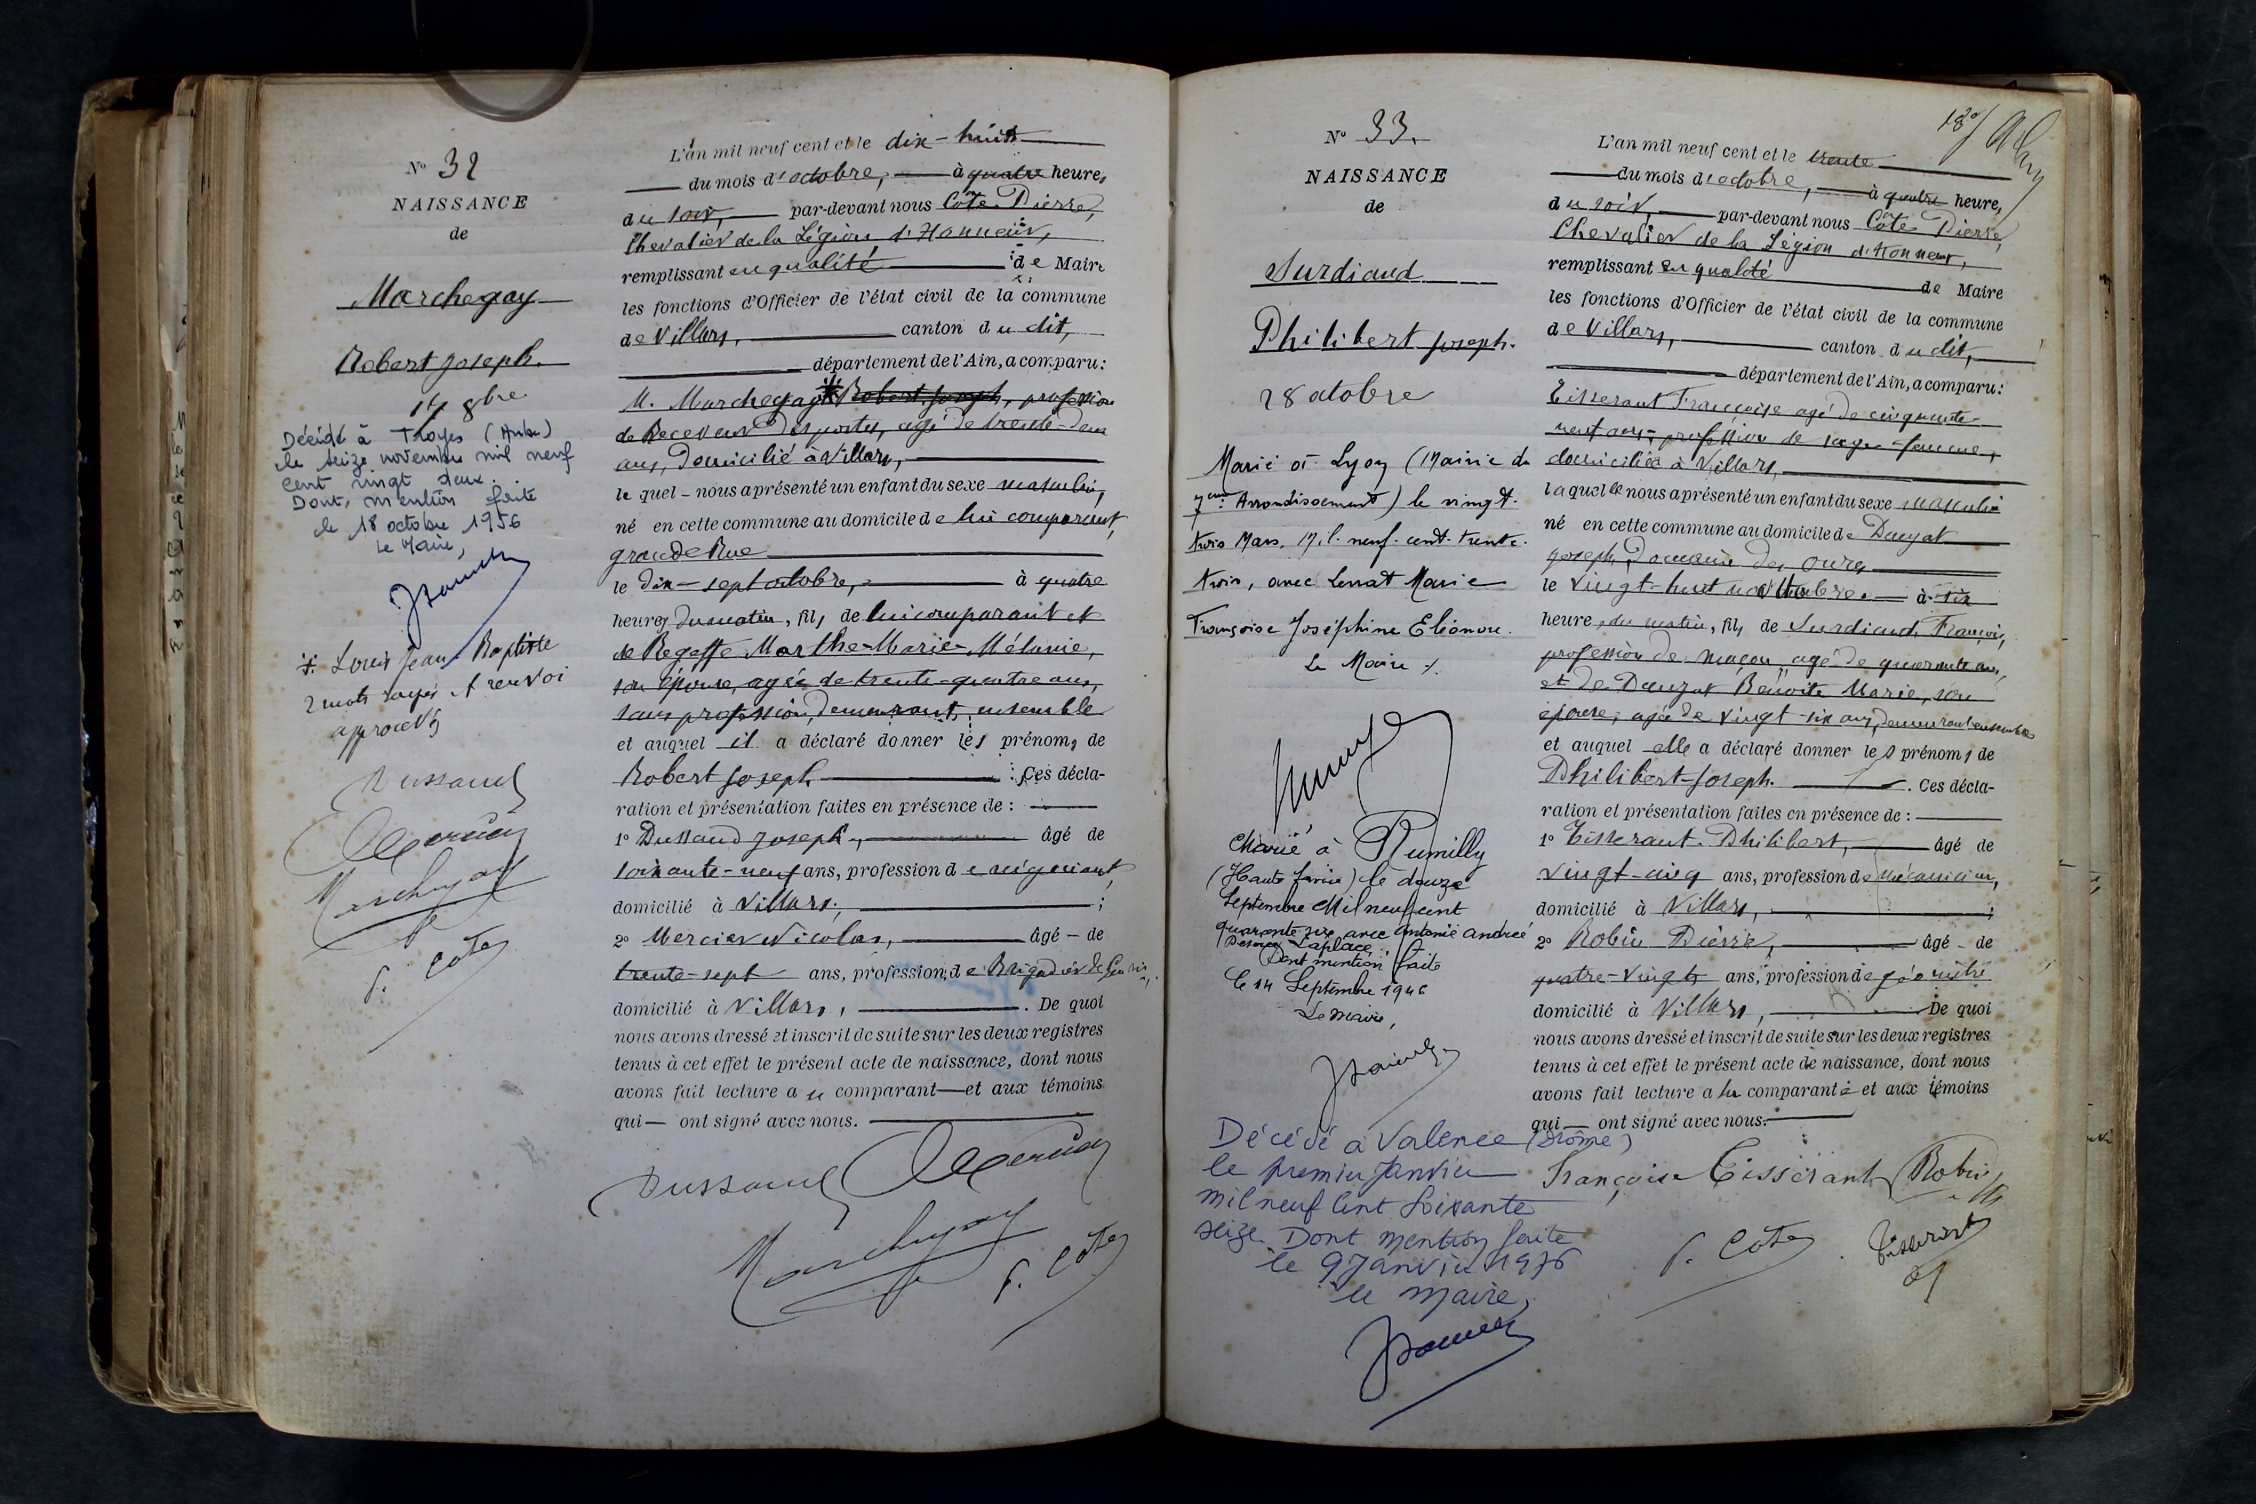 N° 32
NAISSANCE
de
Marchegay
Robert Joseph.
17 8bre
Décédé à Troyes (Aube)
le seize novembre mil neuf
cent vingt deux.
Dont, mention faite
le 18 octobre 1956
Le Maire,
⁜ Louis Jean-Baptiste
2 mots rayés et renvoi
approuvés
Dussaud
Mercier
Marchegay
P. Côte
L'an mil neuf cent et le dix-huit
du mois d'octobre, à quatre heures
du soir, par-devant nous Côte Pierre,
Chevalier de la Légion d'Honneur,
remplissant en qualité de Maire
les fonctions d'Officier de l'état civil de la commune
de Villars, canton du dit,
département de l'Ain, a comparu:
M. Marchegay ⁜ Robert Joseph, profession
de Receveur des postes, agé de trente-deux
ans, Domicilié à Villars,
lequel nous a présenté un enfant du sexe masculin,
né en cette commune au domicile de lui comparant,
grande Rue
le Dix-sept octobre, à quatre
heures du matin, fils de lui comparant et
de Regeffe Marthe-Marie-Mélanie,
son épouse, agée de trente-quatre ans,
sans profession, demeurant, ensemble
et auquel il a déclaré donner les prénoms de
Robert Joseph. Ces décla-
ration et présentation faites en présence de :
1° Dussaud Joseph, âgé de
soixante-neuf ans, profession de négociant,
domicilié à Villars, ;
2° Mercier Nicolas, âgé de
trente-sept ans, profession de Brigadier de
domicilié à Villars, . De quoi
nous avons dressé et inscrit de suite sur les deux registres
tenus à cet effet le présent acte de naissance, dont nous
avons fait lecture au comparant et aux témoins
qui ont signé avec nous.
Dussaud Mercier
Marchegay P. Côte
N° 33.
NAISSANCE
de
Surdiaud
Philibert Joseph.
28 octobre
Marié à Lyon (Mairie du
7eme Arrondissement) le vingt-
trois Mars, Mil neuf-cent-trente-
trois, avec Lerrat Marie
Françoise Joséphine Eléonore.
Le Maire
Marié à Rumilly
(Haute Savoie) le douze
Septembre Mil neuf cent
quarante six avec Antonie Andrée
Laplace
Dont mention faite
le 14 Septembre 1946
Le Maire,
Décédé à Valence (Drôme)
le premier Janvier
mil neuf cent Soixante
seize. Dont mention faite
le 9 Janvier 1976
le Maire,
L'an mil neuf cent et le trente
du mois d'octobre, à quatre heures
du soir, par-devant nous Côte Pierre,
Chevalier de la Légion d'Honneur,
remplissant en qualité de Maire
les fonctions d'Officier de l'état civil de la commune
de Villars, canton du dit,
département de l'Ain, a comparu:
Tisserant Françoise agé de cinquante-
neuf ans, profession de sage-femme,
domiciliée à Villars,
laquelle nous a présenté un enfant du sexe masculin
né en cette commune au domicile de Dauzat
Joseph, Domaine des ours
le vingt-huit octobre. à six
heures du matin, fils de Surdiaud, François,
profession de maçon, agé de quarante ans,
et de Dauzat Benoite Marie, son
épouse, agée de vingt-six ans, demeurant ensemble
et auquel elle a déclaré donner les prénoms de
Philibert-Joseph. . Ces décla-
ration et présentation faites en présence de :
1° Tisserant Philibert, âgé de
vingt-cinq ans, profession de mécanicien,
domicilié à Villars, ;
2° Robin Pierre, âgé de
quatre-vingts ans, profession de géomètre
domicilié à Villars, De quoi
nous avons dressé et inscrit de suite sur les deux registres
tenus à cet effet le présent acte de naissance, dont nous
avons fait lecture a la comparante et aux témoins
qui ont signé avec nous.
Françoise Tisserant Robin
P. Côte Tisserant